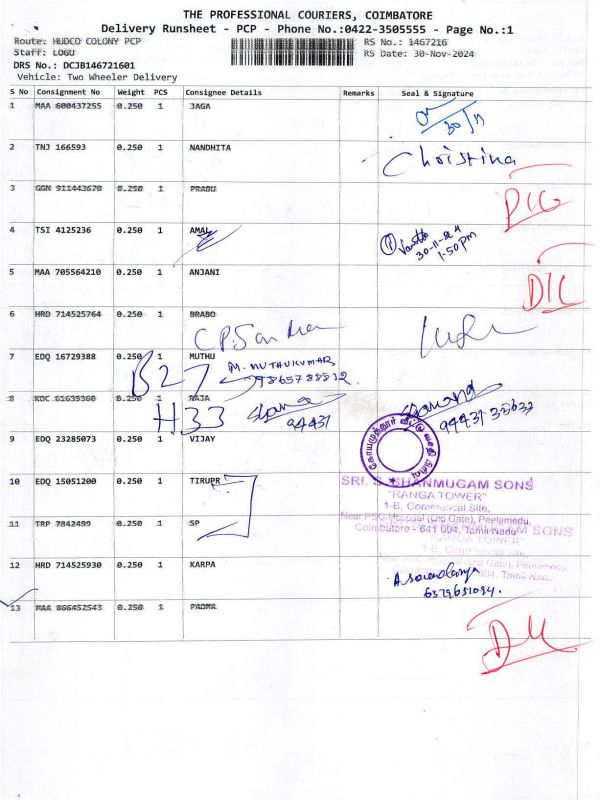 THE PROFESSIONAL COURIERS, COIMBATORE
Delivery Runsheet - PCP - Phone No.:0422-3505555 - Page No.:1
Route: HUDCO COLONY PCP RS No.: 1467216
Staff: LOGU RS Date: 30-Nov-2024
DRS No.: DCJB146721601
Vehicle: Two Wheeler Delivery
S No Consignment No Weight PCS Consignee Details Remarks Seal & Signature
1 MAA 600437255 0.250 1 JAGA
30/11
2 TNJ 166593 0.250 1 NANDHITA
Christina
3 GGN 911443670 0.250 1 PRABU
4 TSI 4125236 0.250 1 AMAL
30-11-24
1.50pm
5 MAA 705564210 0.250 1 ANJANI
6 HRD 714525764 0.250 1 BRABO
7 EDQ 16729388 0.250 1 MUTHU
B27 M. MUTHUKUMAR
9865788812
8 KOC 61639360 0.250 1 RAJA
H33 94431
94431-33633
9 EDQ 23285073 0.250 1 VIJAY
10 EDQ 15051200 0.250 1 TIRUPR
SRI. S. SHANMUGAM SONS
"RANGA TOWER"
1-B, Commercial Site,
Near PSG Hospital (Opp Gate), Peelamedu,
Coimbatore - 641 004, Tamil Nadu
11 TRP 7842499 0.250 1 SP
12 HRD 714525930 0.250 1 KARPA
A. Soundarya
6379651094.
13 MAA 866452543 0.250 1 PADMA